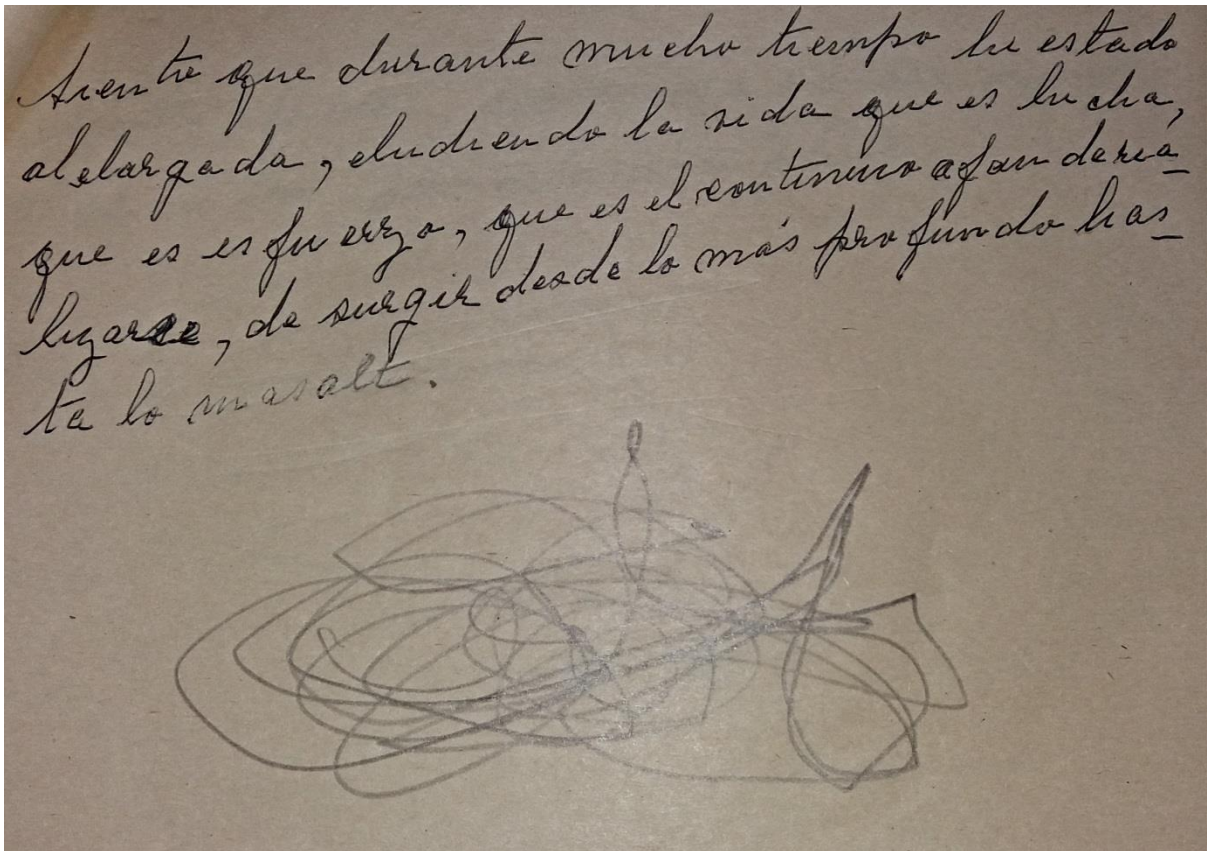 siento que durante mucho tiempo he estado
aletargada, eludiendo la vida que es lucha,
que es esfuerzo, que es el continuo afan de rea_
lizarse, de surgir desde lo más profundo has_
ta lo mas alt.